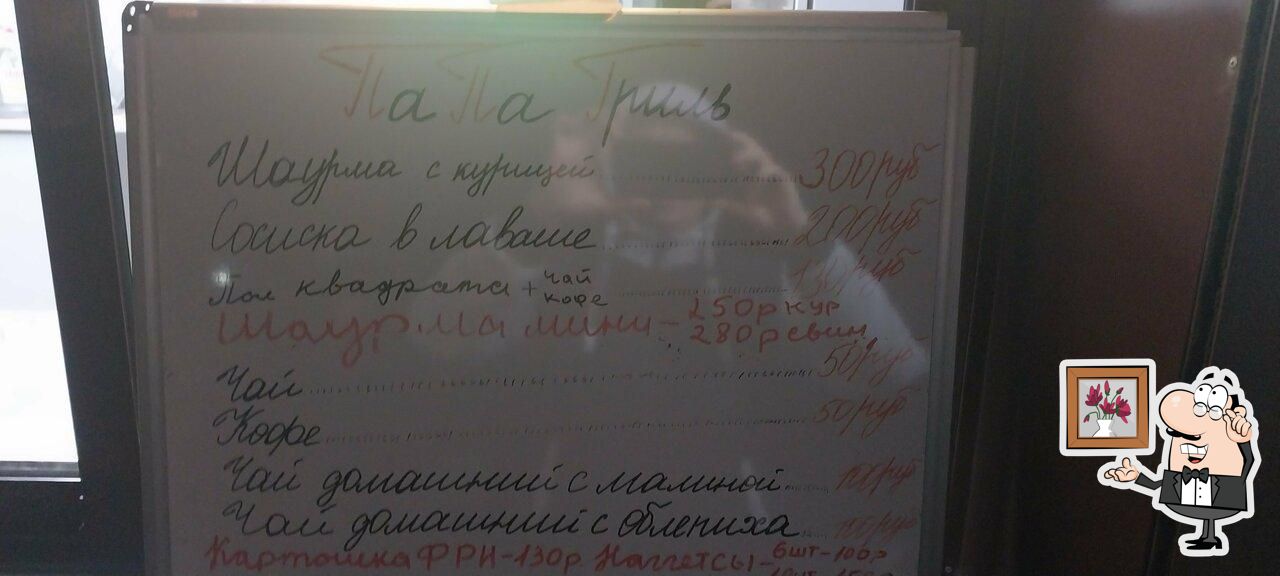 ПаПа Гриль
Шаурма с курицей 300руб
Сосиска в лаваше 200руб
Пол квадрата + чай кофе 130руб
Шаурма мини - 250р кур
280р свин
Чай 50руб
Кофе 50руб
Чай домашний с малиной 100руб
Чай домашний с облепиха 100руб
Картошка ФРИ-130р. Наггетсы - 6шт-100р